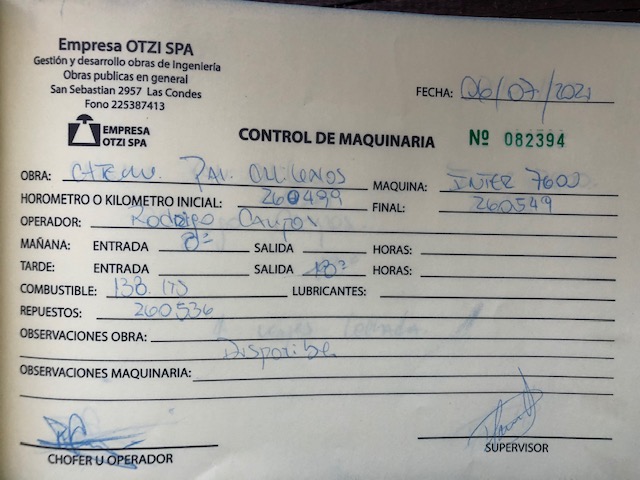 Empresa OTZI SPA
Gestión y desarrollo obras de Ingeniería
Obras publicas en general
San Sebastian 2957 Las Condes
Fono 225387413
FECHA: 06/07/2021
EMPRESA
OTZI SPA
CONTROL DE MAQUINARIA Nº 082394
OBRA: MAQUINA: INTER 7600
HOROMETRO O KILOMETRO INICIAL: 260499 FINAL: 260549
OPERADOR: RODRIGO CAMPOS
MAÑANA: ENTRADA 8º SALIDA HORAS:
TARDE: ENTRADA SALIDA 18º HORAS:
COMBUSTIBLE: 138 LUBRICANTES:
REPUESTOS: 260536
OBSERVACIONES OBRA:
Disponible
OBSERVACIONES MAQUINARIA:
CHOFER U OPERADOR
SUPERVISOR